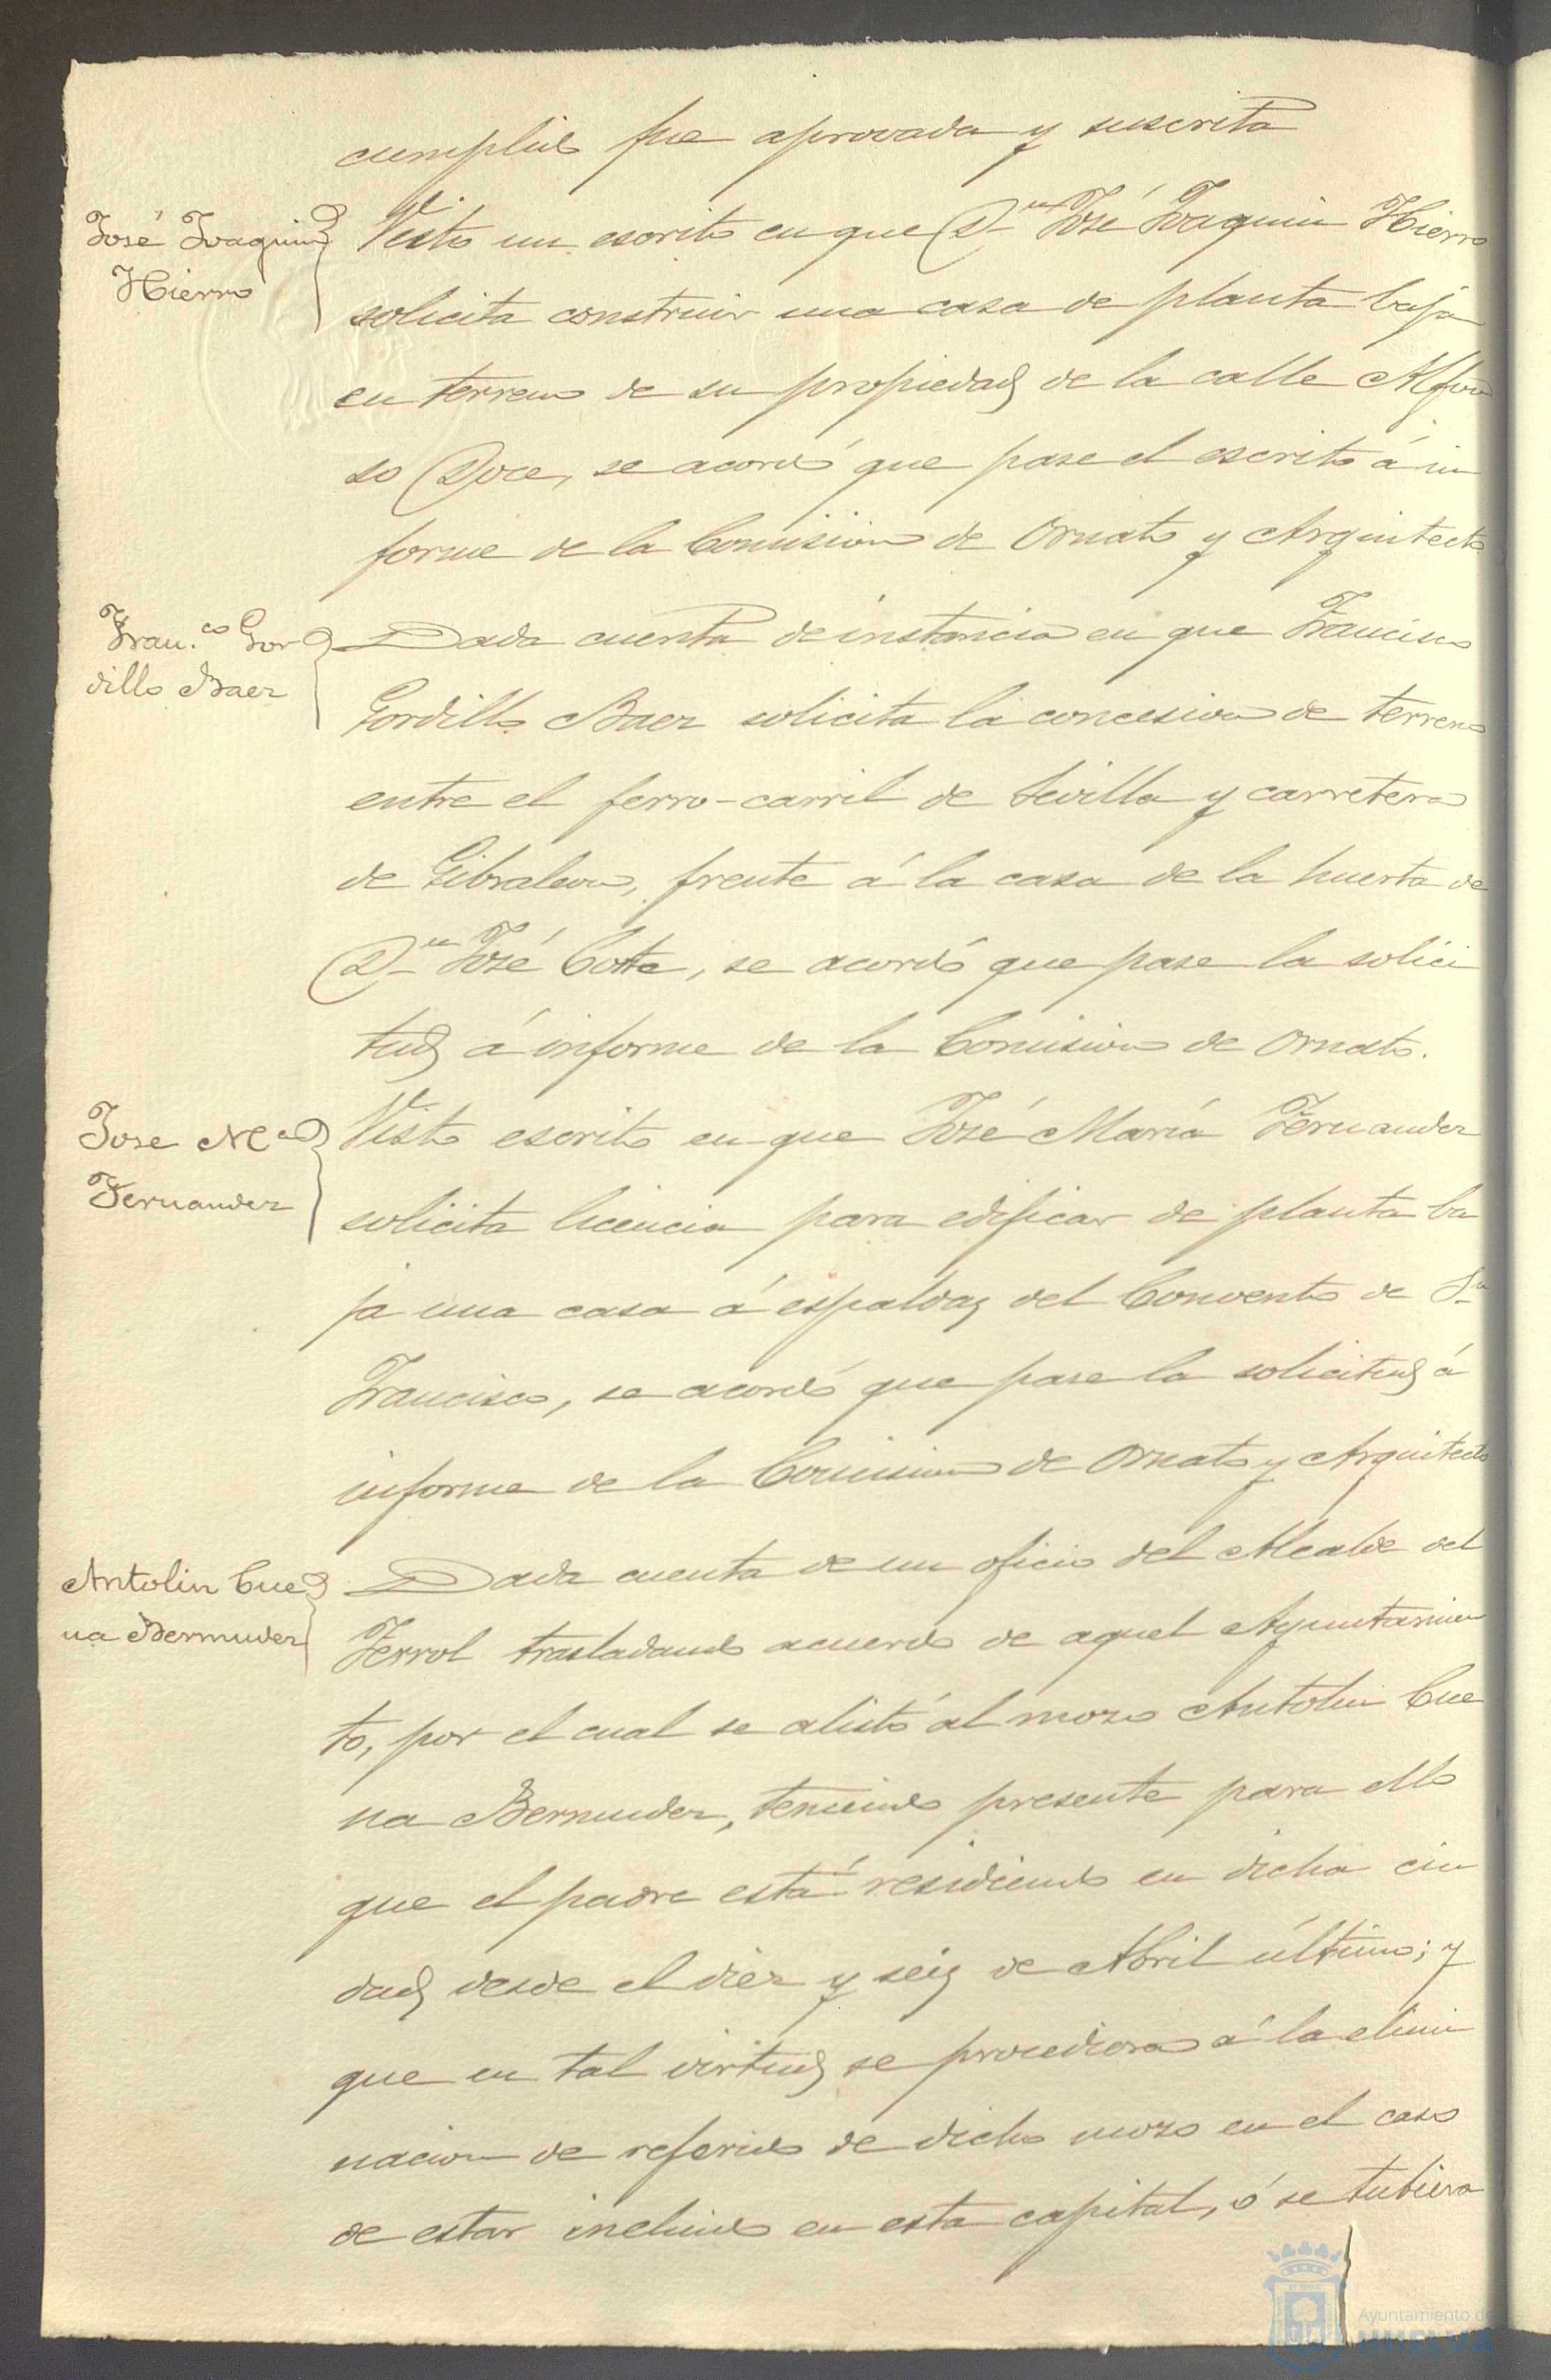 cumplido fue aprovada y suscrita
José Joaquin
Hierro
Visto un escrito en que Dn José Joaquin Hierro
solicita construir una casa de planta baja
en terreno de su propiedad de la calle Alfon
so Doce, se acordó que pase el escrito á in
forme de la Comision de Ornato y Arquitecto
Fran.co Gor
dillo Baez
Dada cuenta de instancia en que Francisco
Gordillo Baez solicita la concesion de terreno
entre el ferro-carril de Sevilla y carretera
de Gibraleon, frente á la casa de la huerta de
Dn José Cotta, se acordó que pase la solici
tud á informe de la Comision de Ornato.
Jose Ma
Fernandez
Visto escrito en que José María Fernandez
solicita licencia para edificar de planta ba
ja una casa á espaldas del Convento de Sn
Francisco, se acordó que pase la solicitud á
informe de la Comision de Ornato y Arquitecto
Antolin Cue
na Bermudez
Dada cuenta de un oficio del Alcalde del
Ferrol trasladando acuerdo de aquel Ayuntamien
to, por el cual se alistó al mozo Antolin Cue
na Bermudez, teniendo presente para ello
que el padre está residiendo en dicha ciu
dad desde el diez y seis de Abril último; y
que en tal virtud se procediera á la elimi
nacion de referido de dicho mozo en el caso
de estar incluido en esta capital, ó se tubiera
Ayuntamiento de
HUELVA